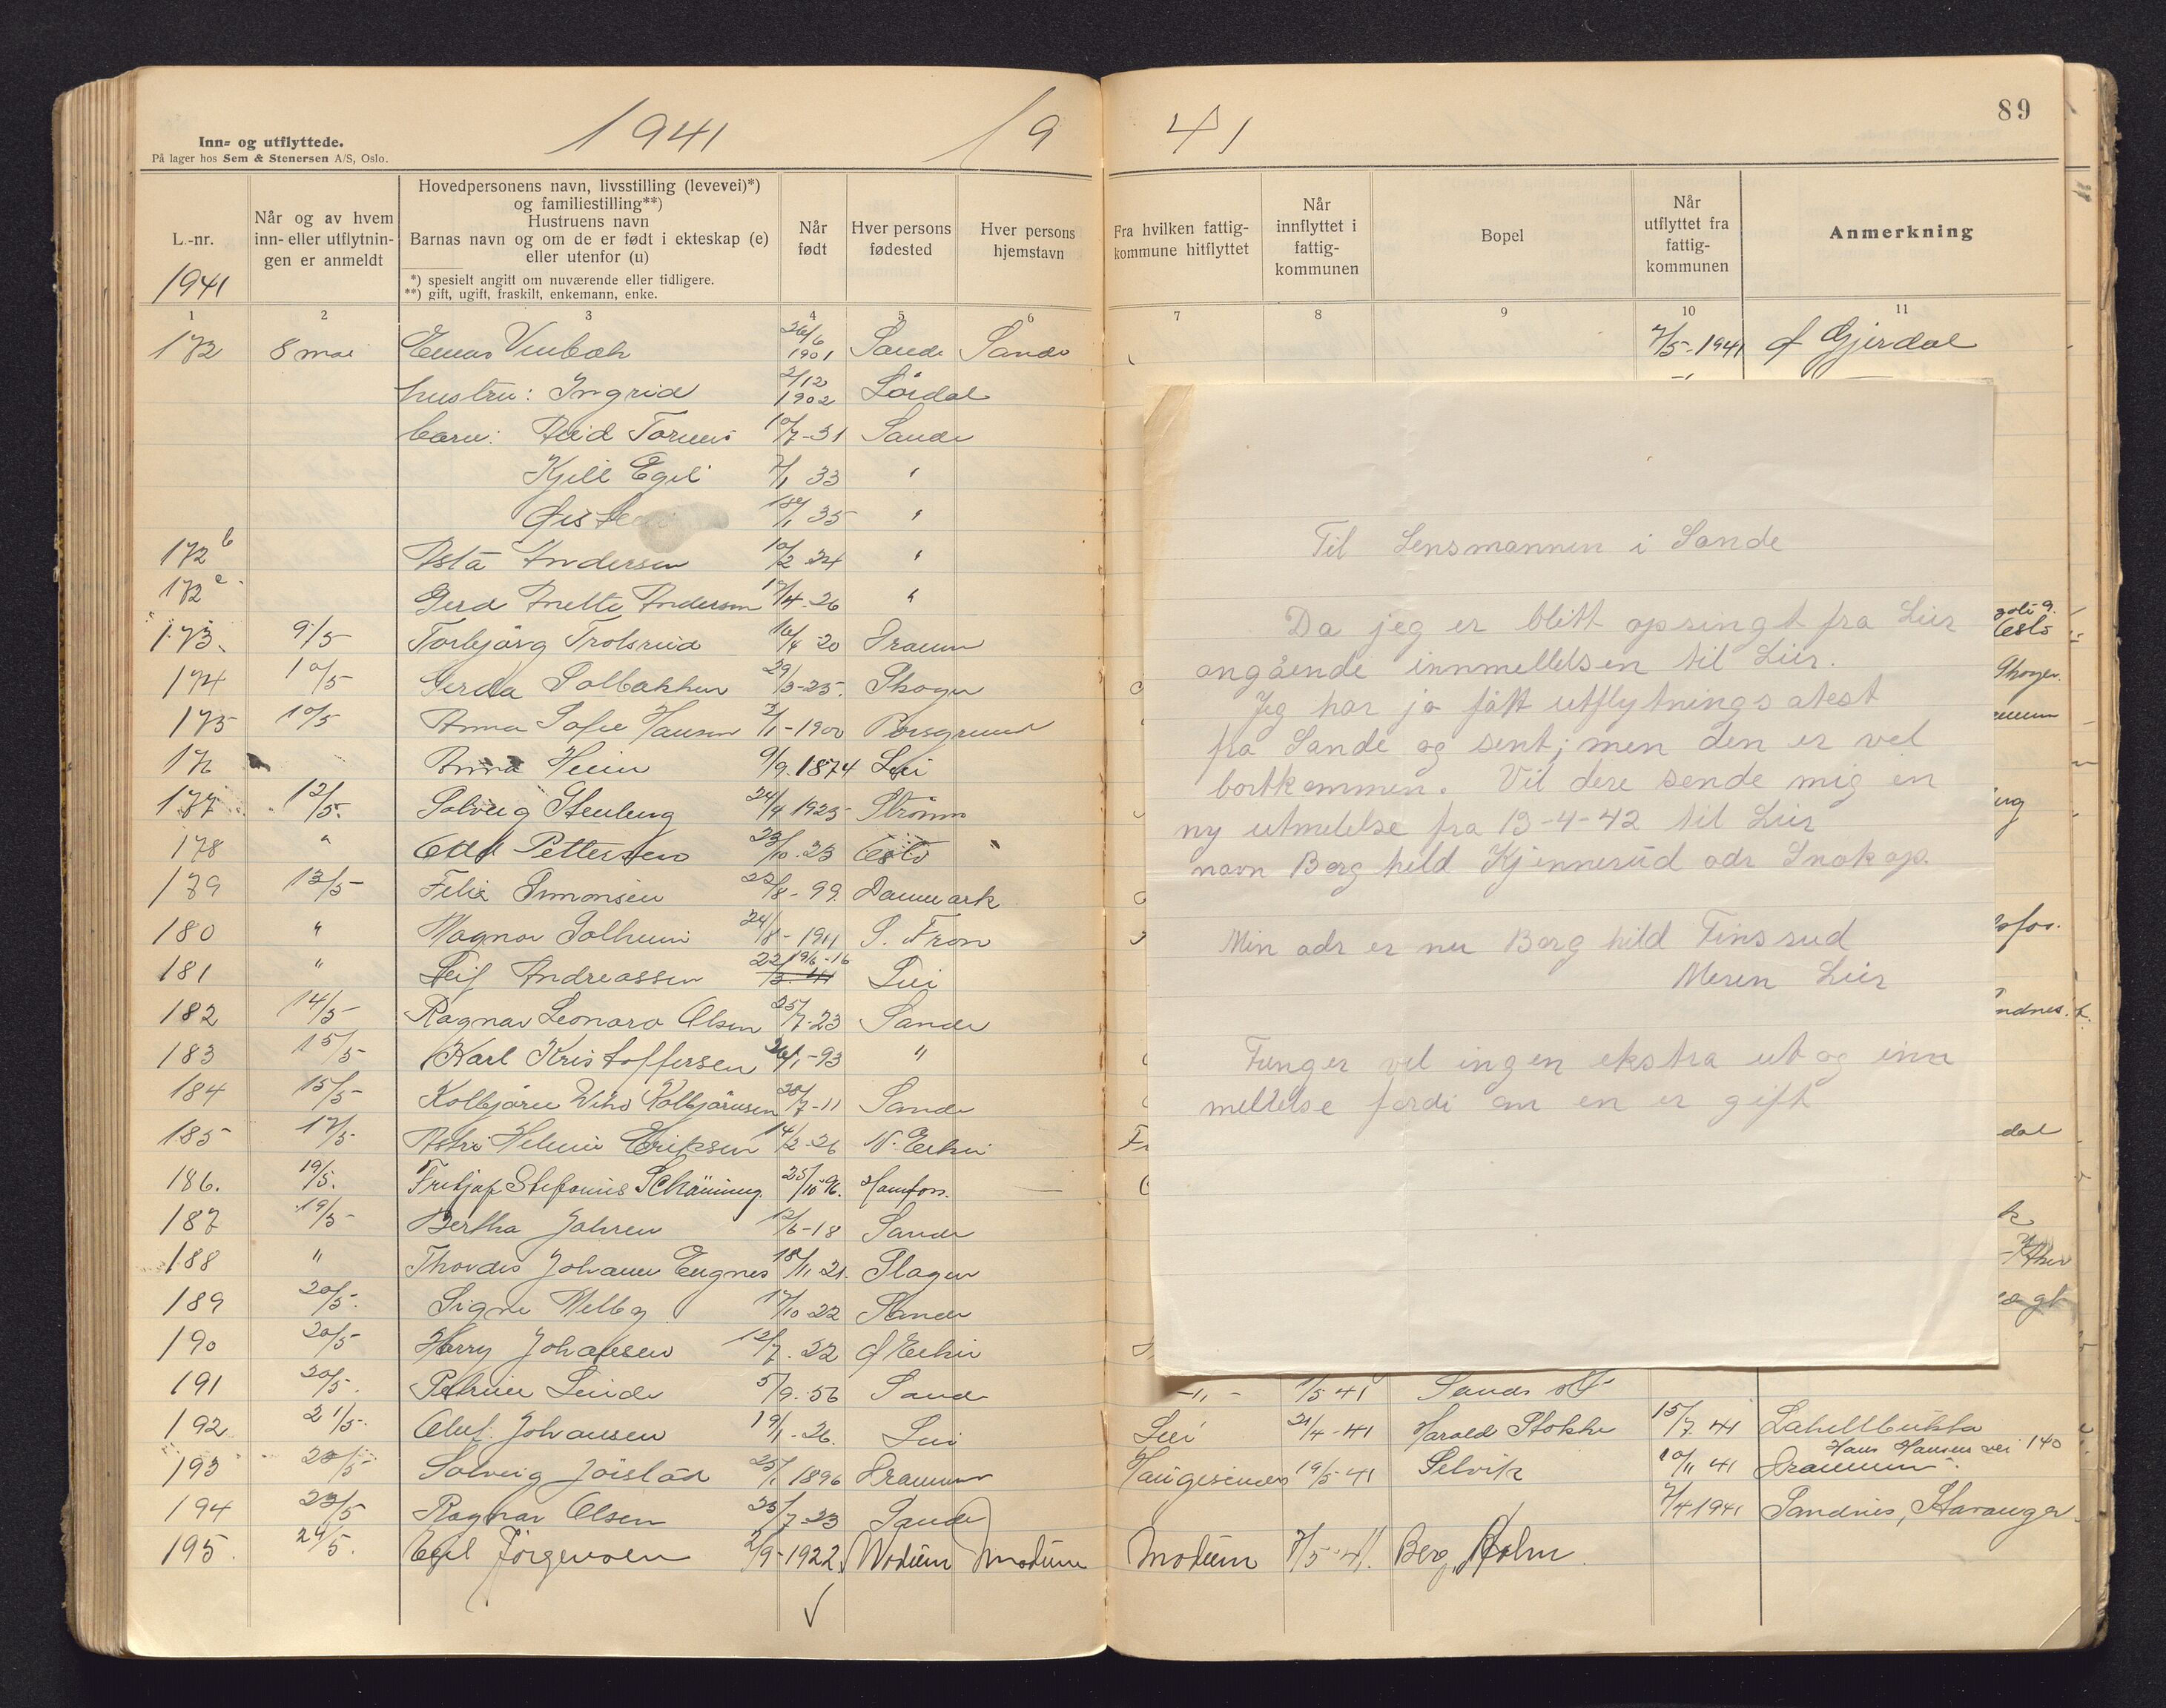 1941
19
41
89
Inn- og utflyttede.
På lager hos Sem & Stenersen A/S, Oslo.
L.-nr.
1941
Når og av hvem
inn- eller utflytnin-
gen er anmeldt
Hovedpersonens navn, livsstilling (levevei)*)
og familiestilling**)
Hustruens navn
Barnas navn og om de er født i ekteskap (e)
eller utenfor (u)
*) spesielt angitt om nuværende eller tidligere.
**) gift, ugift, fraskilt, enkemann, enke.
Når
født
Hver persons
fødested
Hver persons
hjemstavn
Fra hvilken fattig-
kommune hitflyttet
Når
innflyttet i
fattig-
kommunen
Bopel
Når
utflyttet fra
fattig-
kommunen
Anmerkning
1 2 3 4 5 6 7 8 9 10 11
172 8 mai Einar 26/6 1901 Sande Sande 7/5-1941 Gjerdal
hustru: Ingrid 2/12 1902
barn: 10/7-31 Sande
Kjell Egil 7/1 33 "
18/1 35 "
172 b Asta Andersen 10/2 24 "
172 c Gerd Anette Andersen 17/4-26 "
173. 9/5 Torbjørg Trolsrud 16/4 20 Dramm Oslo
174 10/5 Gerda Solbakken 29/3-25. Skoger Skoger
175 10/5 Anna Sofie Hansen 2/1-1900 Porsgrund
176 Anna 9/9.1874 Lier
177 12/5. Solveig Stenberg 24/4 1925 Strømm
178 " Odd Pettersen 23/10.23 Oslo "
179 13/5 Felix Simonsen 22/8-99. Danmark
180 " Magnar Solheim 24/8-1911 S. Fron
181 " Leif Andreassen 19/6-16 Lier
182 14/5 Ragnar Leonard Olsen 25/7-23 Sande
183 15/5 Karl Kristoffersen 26/1-93 "
184 15/5 Kolbjørn Kolbjørnsen 28/7-11 Sande
185 17/5 Astri Helene Eriksen 14/2-26 N. Eiker
186. 19/5. Fritjof Stefanus Schäning 25/10-96.
187 19/5 Bertha Jahren 12/6-18 Sande
188 " Thordis Johanne Engnes 18/11 21. Slagen
189 20/5. Signe Melby 17/10 22 Sande
190 20/5 Harry Johansen 12/7. 22 Ø Eiker
191 20/5. Petrine Linde 5/9.56 Sande -"- 1/5 41 Sande
192 21/5. Oluf. Johansen 19/1-26. Lier Lier 21/4-41 Harald Stokke 15/7 41 Lahellbukta
193 23/5 Solveig 25/1 1896 Drammen 19/5-41 Selvik 10/11 41 Hans Hansens vei 140
Drammen
194 23/5 Ragnar Olsen 25/7-23 Sande 7/4 1941 Sandnes, Stavanger
195. 24/5. Egil Jørgensen 2/9-1922. Modum Modum Modum 7/5-41. Berg, Holm.
Til Lensmannen i Sande
Da jeg er blitt opringt fra Lier
angående innmellelsen til Lier.
Jeg har jo fått utflytnings atest
fra Sande og sent; men den er vel
bortkommen. Vil dere sende mig en
ny utmelelse fra 13-4-42 til Lier
navn Borghild Kjennerud adr Snekop.
Min adr er nu Borghild Finsrud
Meren Lier
Trenger vel ingen ekstra ut og inn
mellelse fordi om en er gift